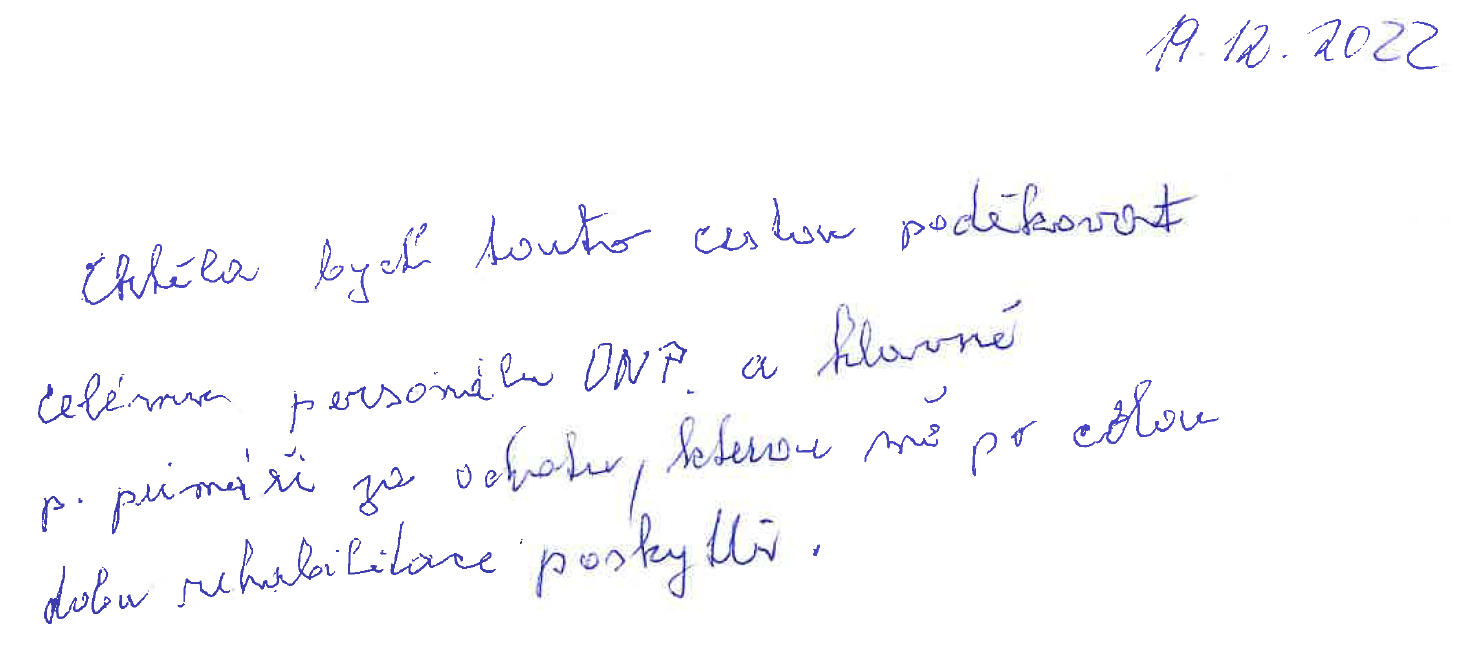 19.12.2022
Chtěla bych touto cestou poděkovat
celému personálu ONP. a hlavně
p. primáři za ochotu, kterou mě po celou
dobu rehabilitace poskytli.